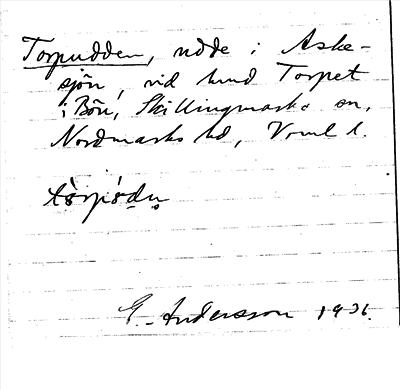 Torpudden, udde i Aske-
sjön, vid hmd Torpet
i Bön, Skillingmarks sn,
Nordmarks hd, Vrml l.
tòrpúdn̥
E. Andersson 1931.